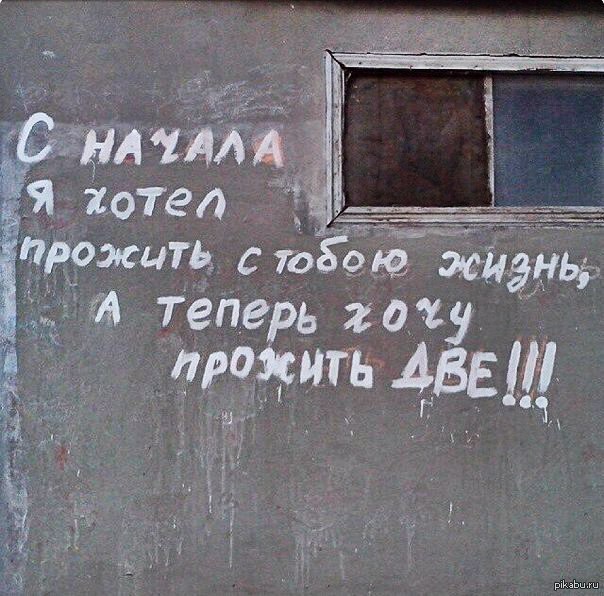 С НАЧАЛА
Я хотел
прожить с тобою жизнь,
А теперь хочу
прожить ДВЕ!!!
pikabu.ru